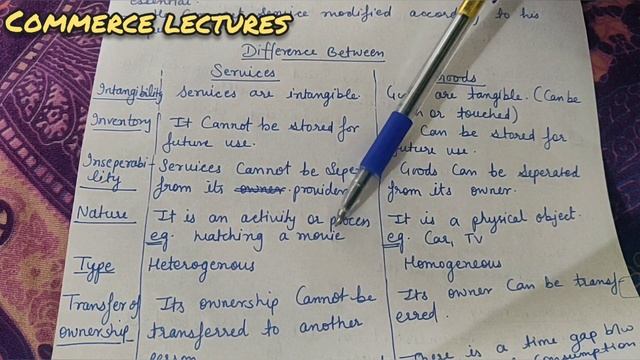 COMMERCE LECTURES
essential.
service modified according to his
Difference Between
Services
Goods
Intangibility
Services are intangible.
are tangible. (Can be
or touched)
Inventory
It Cannot be stored for
future use.
Can be stored for
future use.
Insepera­bi-
lity
Services Cannot be
from its owner provider
Goods Can be seperated
from its owner.
Nature
It is an activity or
eg. Watching a movie
It is a physical object.
eg. Car, TV
Type
Heterogenous
Homogeneous
Transfer of
ownership
Its ownership Cannot be
transferred to another
Its owner Can be transf-
erred.
There is a time gap b/w